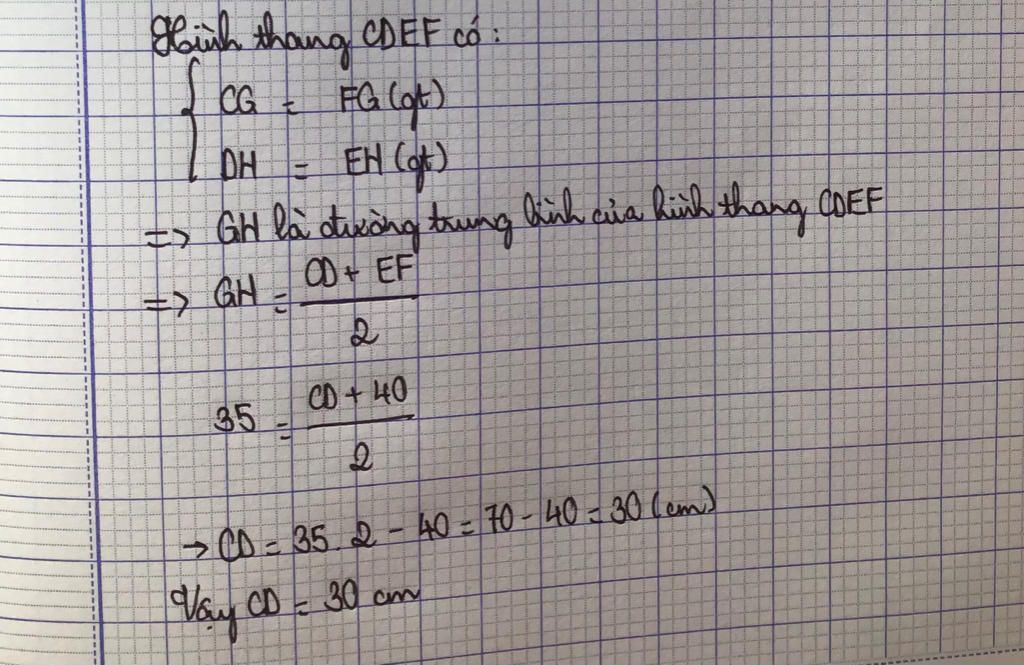 Hình thang CDEF có:
{ CG = FG (gt)
DH = EH (gt)
=> GH là đường trung bình của hình thang CDEF
=> GH = (CD + EF)/2
35 = (CD + 40)/2
→ CD = 35. 2 - 40 = 70 - 40 = 30 (cm)
Vậy CD = 30 cm